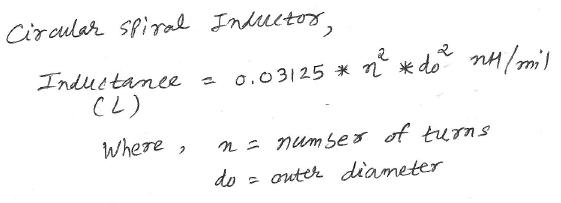 Circular spiral Inductor,
Inductance = 0.03125 * n² * do² nH/mil
(L)
Where, n = number of turns
do = outer diameter